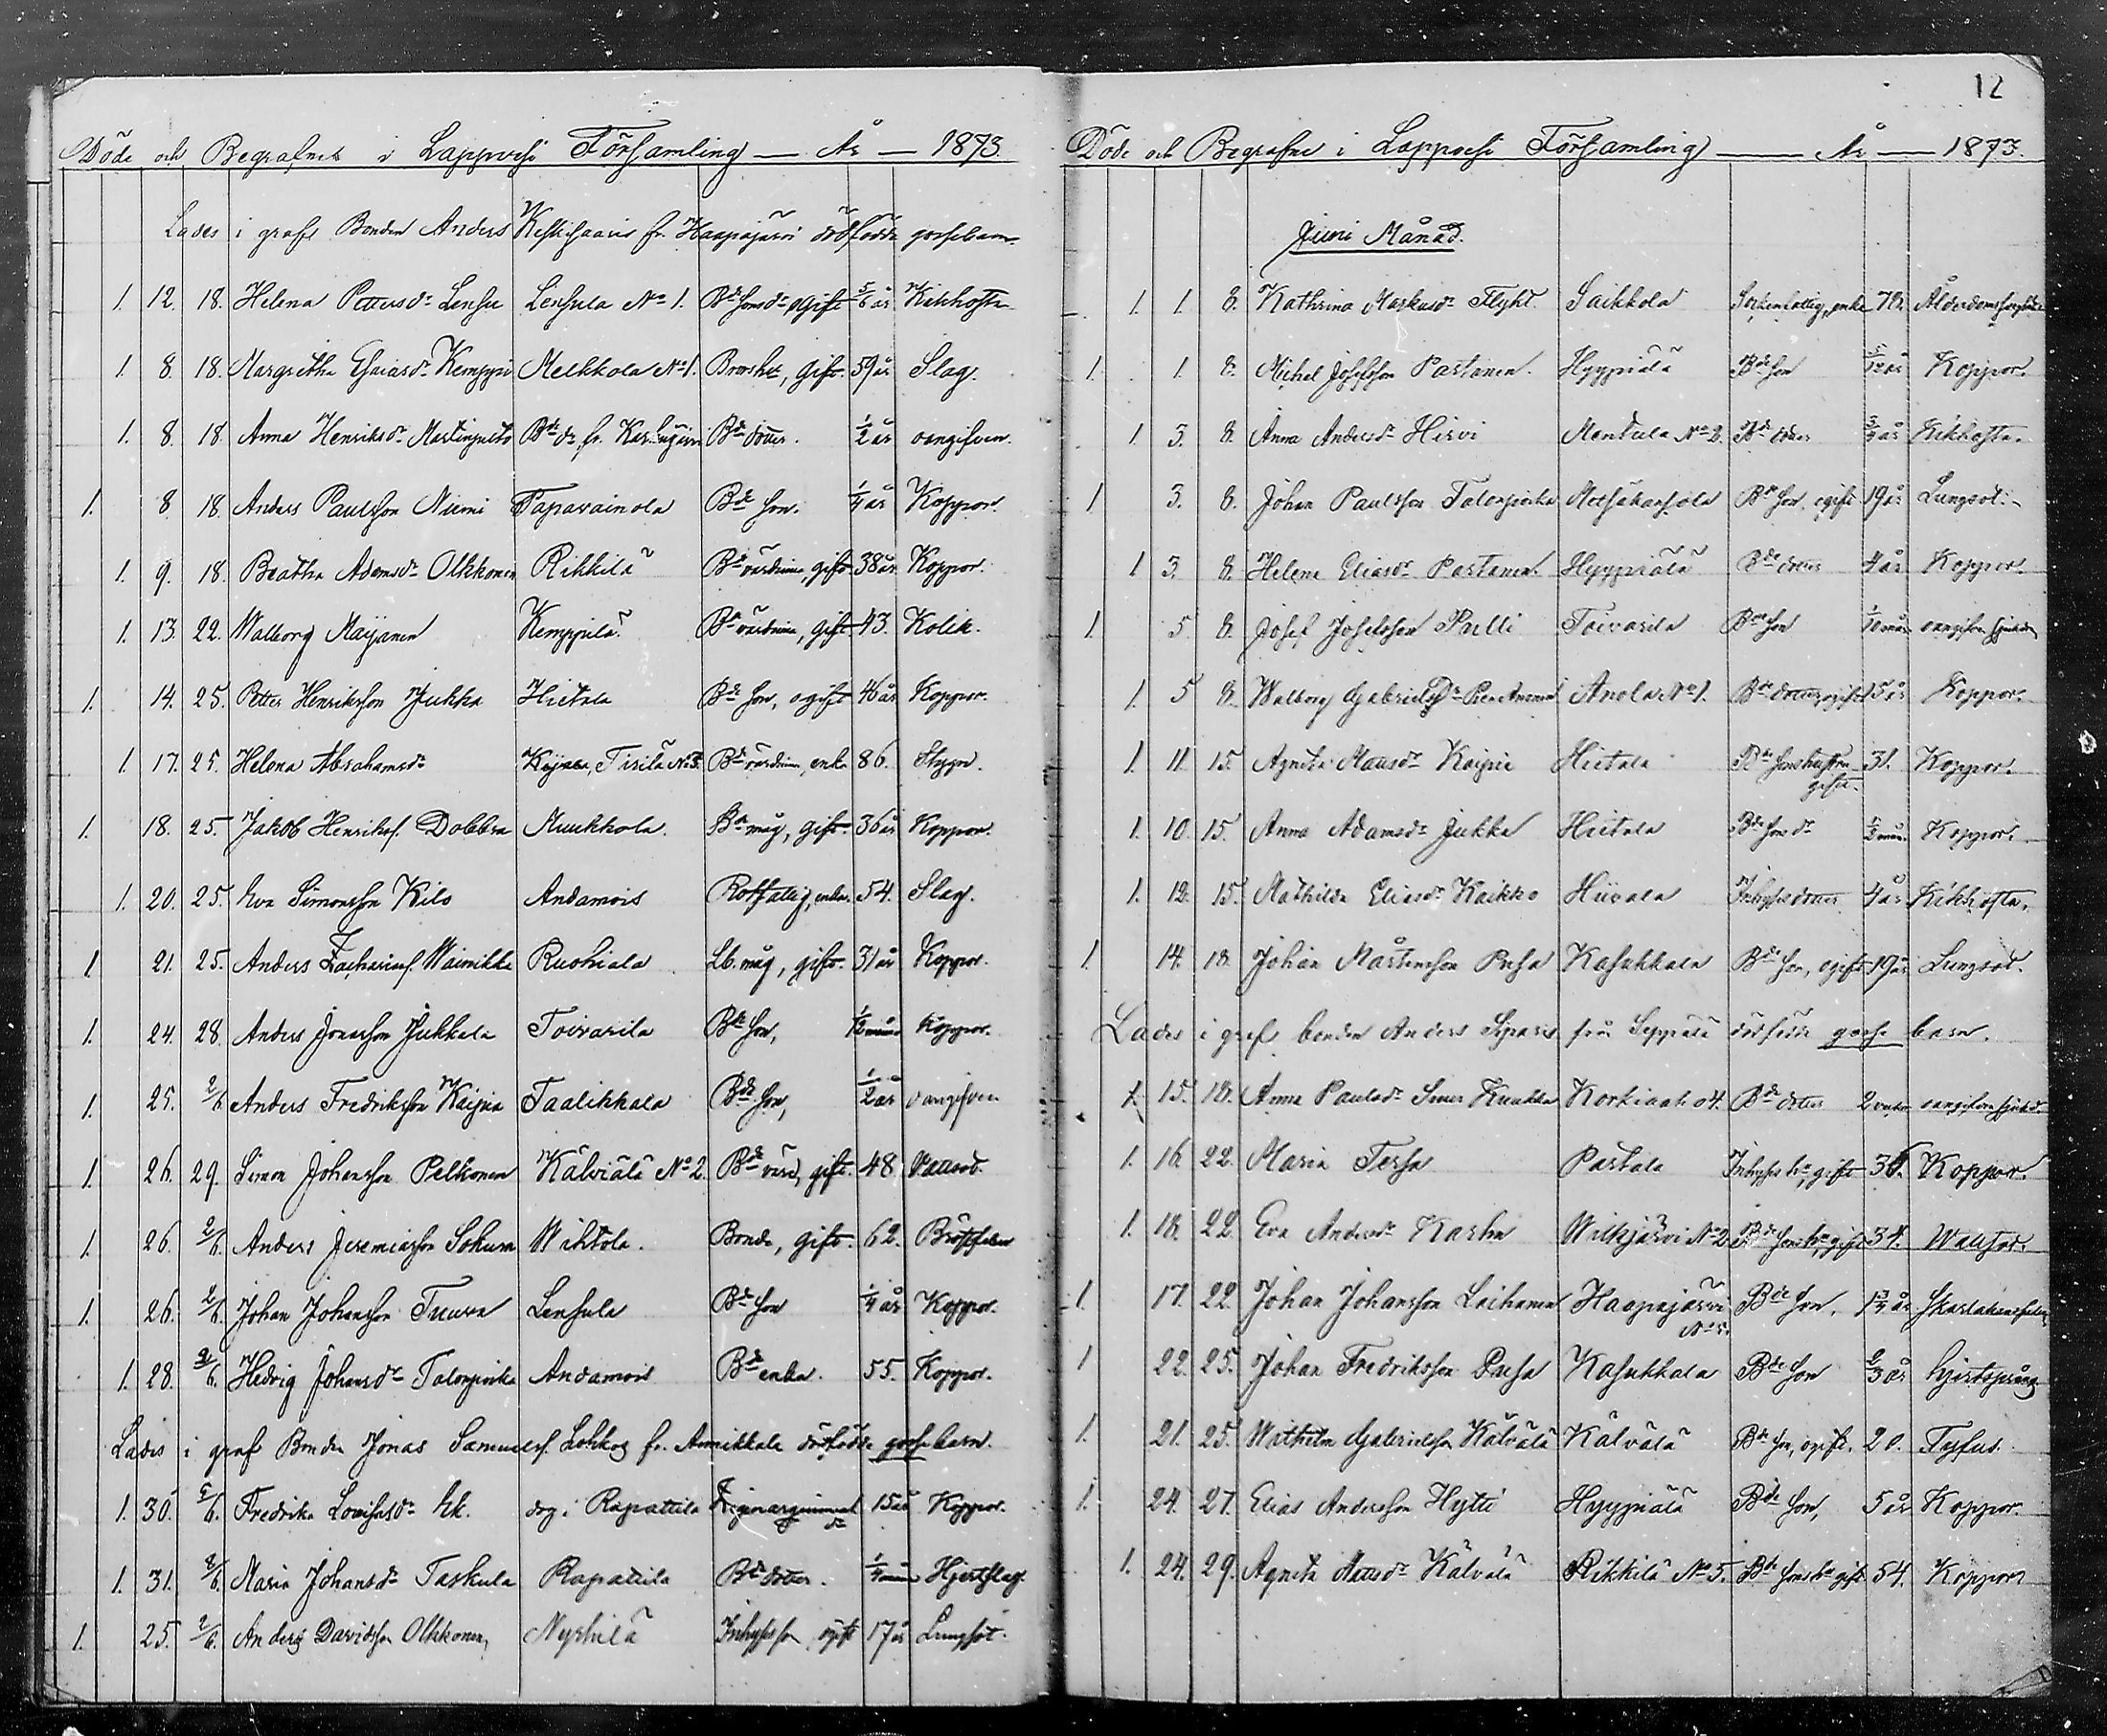 12
Döde och Begrafne i Lappvesi Församling — År — 1873.
Lades i graf Bonden Anders Keskisaaris fr. Haapajärvi dödfödda gossebarn.
1. 12. 18. Helena Pettersdr Lensu Lensula No 1. Bde sonsdr ogift 5/6 år Kikhosta
1. 8. 18. Margretha Esaiasdr Kemppi Melkkola No 1. gift. 59 år Slag.
1. 8. 18. Anna Henriksdr Bde dr fr. Bde dotter. 1/2 år oangifven.
1. 8. 18. Anders Paulsson Niemi Tapavainola Bde son. 1/4 år Koppor.
1. 9. 18. Beatha Adamsdr Olkkonen Rikkilä Bde värdinna, gift 38 år Koppor.
1. 13. 22. Walborg Maijanen Kemppilä. Bde värdinna, gift 43. Kolik.
1. 14. 25. Petter Henriksson Jukka Hietala Bde son, ogift 46 år Koppor.
1. 17. 25. Helena Abrahamsdr Tirilä No 3. Bde värdinna, enka 86. Slagsd.
1. 18. 25. Jakob Henrikss. Muukkola. Bde måg, gift. 36 år Koppor.
1. 20. 25. Eva Simonsson Kilo Andamois Rotfattig, enka. 54. Slag.
1 21. 25. Anders Zachariass. Wainikka Ruohiala Lb. måg, gift. 31 år Koppor.
1. 24. 28. Anders Jonasson Jukkala Toivarila Bde son, Koppor.
1. 25. 2/6. Anders Fredriksson Kaipia Taalikkala Bde son, 1/2 år oangifven
1. 26. 29. Simon Johansson Pelkonen Kälviälä No 2. Bde värd, gift. 48 Vattusot.
1. 26. 2/6. Anders Jeremiasson Wihtola. Bonde, gift. 62. Bröstfeber
1. 26. 2/6. Johan Johansson Tuuva Lensula Bde son 1/4 år Koppor.
1. 28. 2/6. Hedvig Johansdr Talonpoika Andamois Bde enka. 55. Koppor.
Lades i graf Bonden Jonas Samuelss. fr. Armikkala dödfödda gossebarn.
1. 30. /6. Fredrika Lovisasdr Ek. dog i Rapattila 15 år Koppor.
1. 31. 8/6. Maria Johansdr Taskula Rapattila Bde dotter. Hjertslag.
1. 25. 2/6. Anders Davidsson Olkkonen, Inhyses son, ogift 17 år Lungsot.
Döde och Begrafne i Lappvesi Församling — År — 1873.
Juni Månad.
1. 1. 8. Kathrina Markusdr Flykt Saikkola Sockenfattig, enka 70. Ålderdomssvaghet
1. 1 8. Michel Josefsson Partanen. Hyypiälä Bde son 5/12 år Koppor.
1 3. 8. Anna Andersdr Hirvi Montula No 2. Bde dotter 3/4 år Kikhosta.
1 3. 8. Johan Paulsson Talonpoika Metsäkansola Bde son, ogift 19 år Lungsot.
1 3. 8. Helena Eliasdr Partanen. Hyypiälä Bde dotter 4 år Koppor.
1. 5 8. Josef Josefsson Pulli Toivarila Bde son oangifven sjukdom
1. 5 8. Walborg Gabrielsdr Anola No 1. Bde dotter, ogift 15 år Koppor.
1. 11. 15. Agneta Mausdr Kaipia Hietala Bde sonshustru gift. 31. Koppor.
1. 10. 15. Anna Adamsdr Jukka Hietala Bde sonsdr Koppor.
1. 12. 15. Mathilda Eliasdr Kaikko Hiivala Inhyses dotter 4 år Kikhosta.
1. 14. 18. Johan Mårtensson Pusa Kasukkala Bde son, ogift 19 år Lungsot.
Lades i graf bonden Anders Siparis från Seppälä dödfödda gosse barn.
1. 15. 18. Anna Paulsdr Korkiaaho 4. Bde dotter oangifven sjukd.
1. 16. 22. Maria Tersa Partala Inhyses hu, gift 36. Koppor.
1. 18. 22. Eva Andersdr Karhu Wilkjärvi No 2 Bde sons hu, gift 34. Wattsot.
1. 17. 22. Johan Johansson Laihanen Haapajärvi No 5. Bde son, 1 3/4 år Skarlakansfeber
1 22. 25. Johan Fredriksson Pusa Kasukkala Bde son 2/3 år hjertsprång
1. 21. 25. Wilhelm Gabrielsson Kälvälä Kälvälä Bde son, ogift. 20. Tyfus.
1. 24. 27. Elias Andersson Hytti Hyypiälä Bde son, 5 år Koppor.
1. 24. 29. Agneta Mattsdr Kälvälä Rikkilä No 5. Bde sons hu gift 54. Koppor